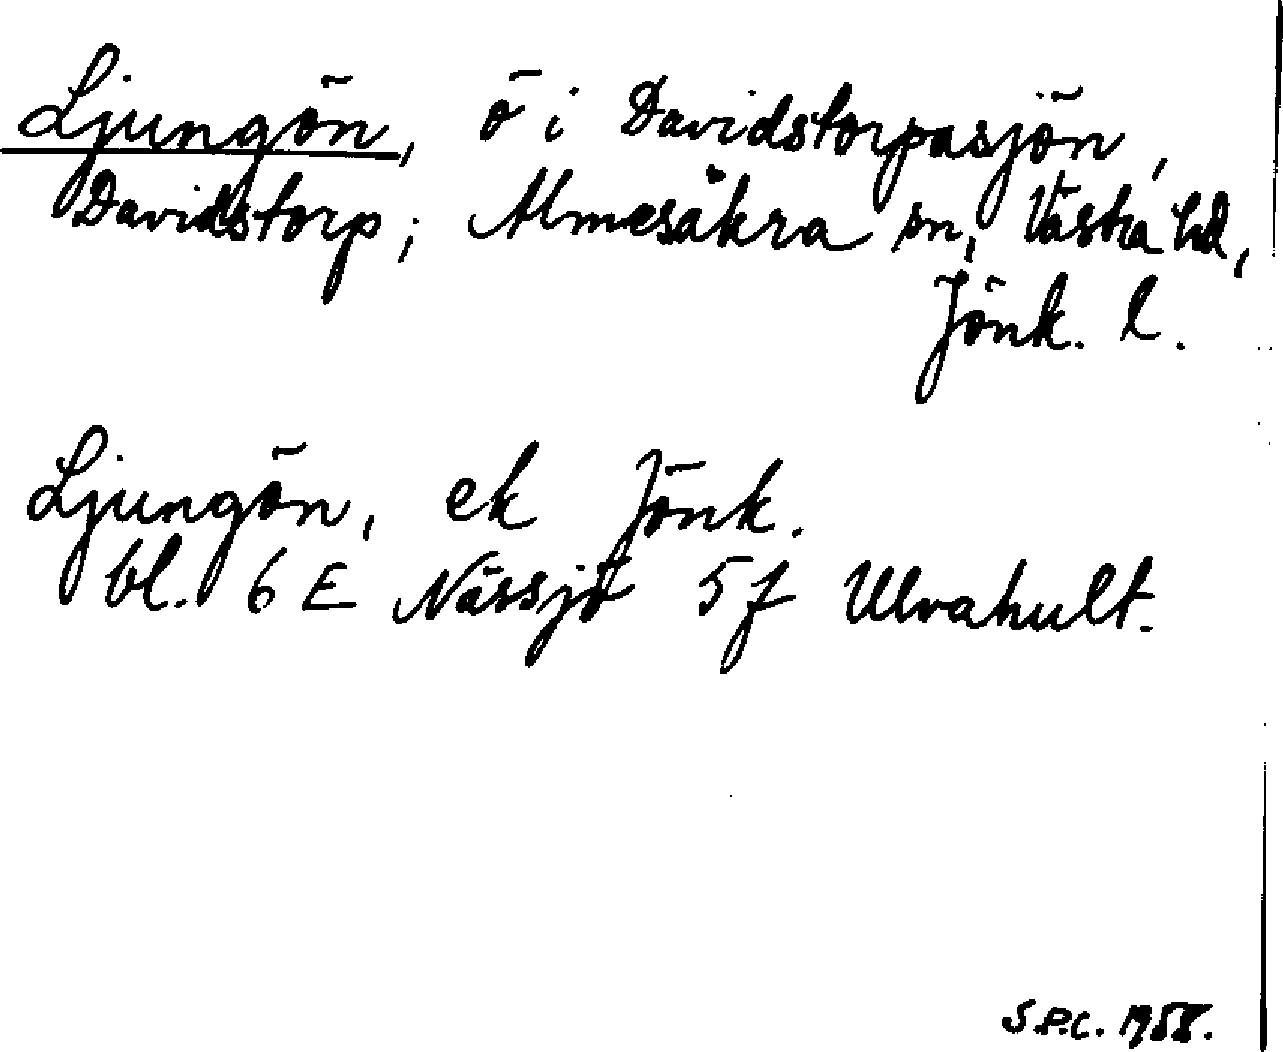 Ljungön, ö i Davidstorpasjön,
Davidstorp; Almesåkra sn, Västra hd,
Jönk. l.
Ljungön, ek Jönk.
bl. 6 E Nässjö 5f Ulvahult.
S.P.C. 1958.